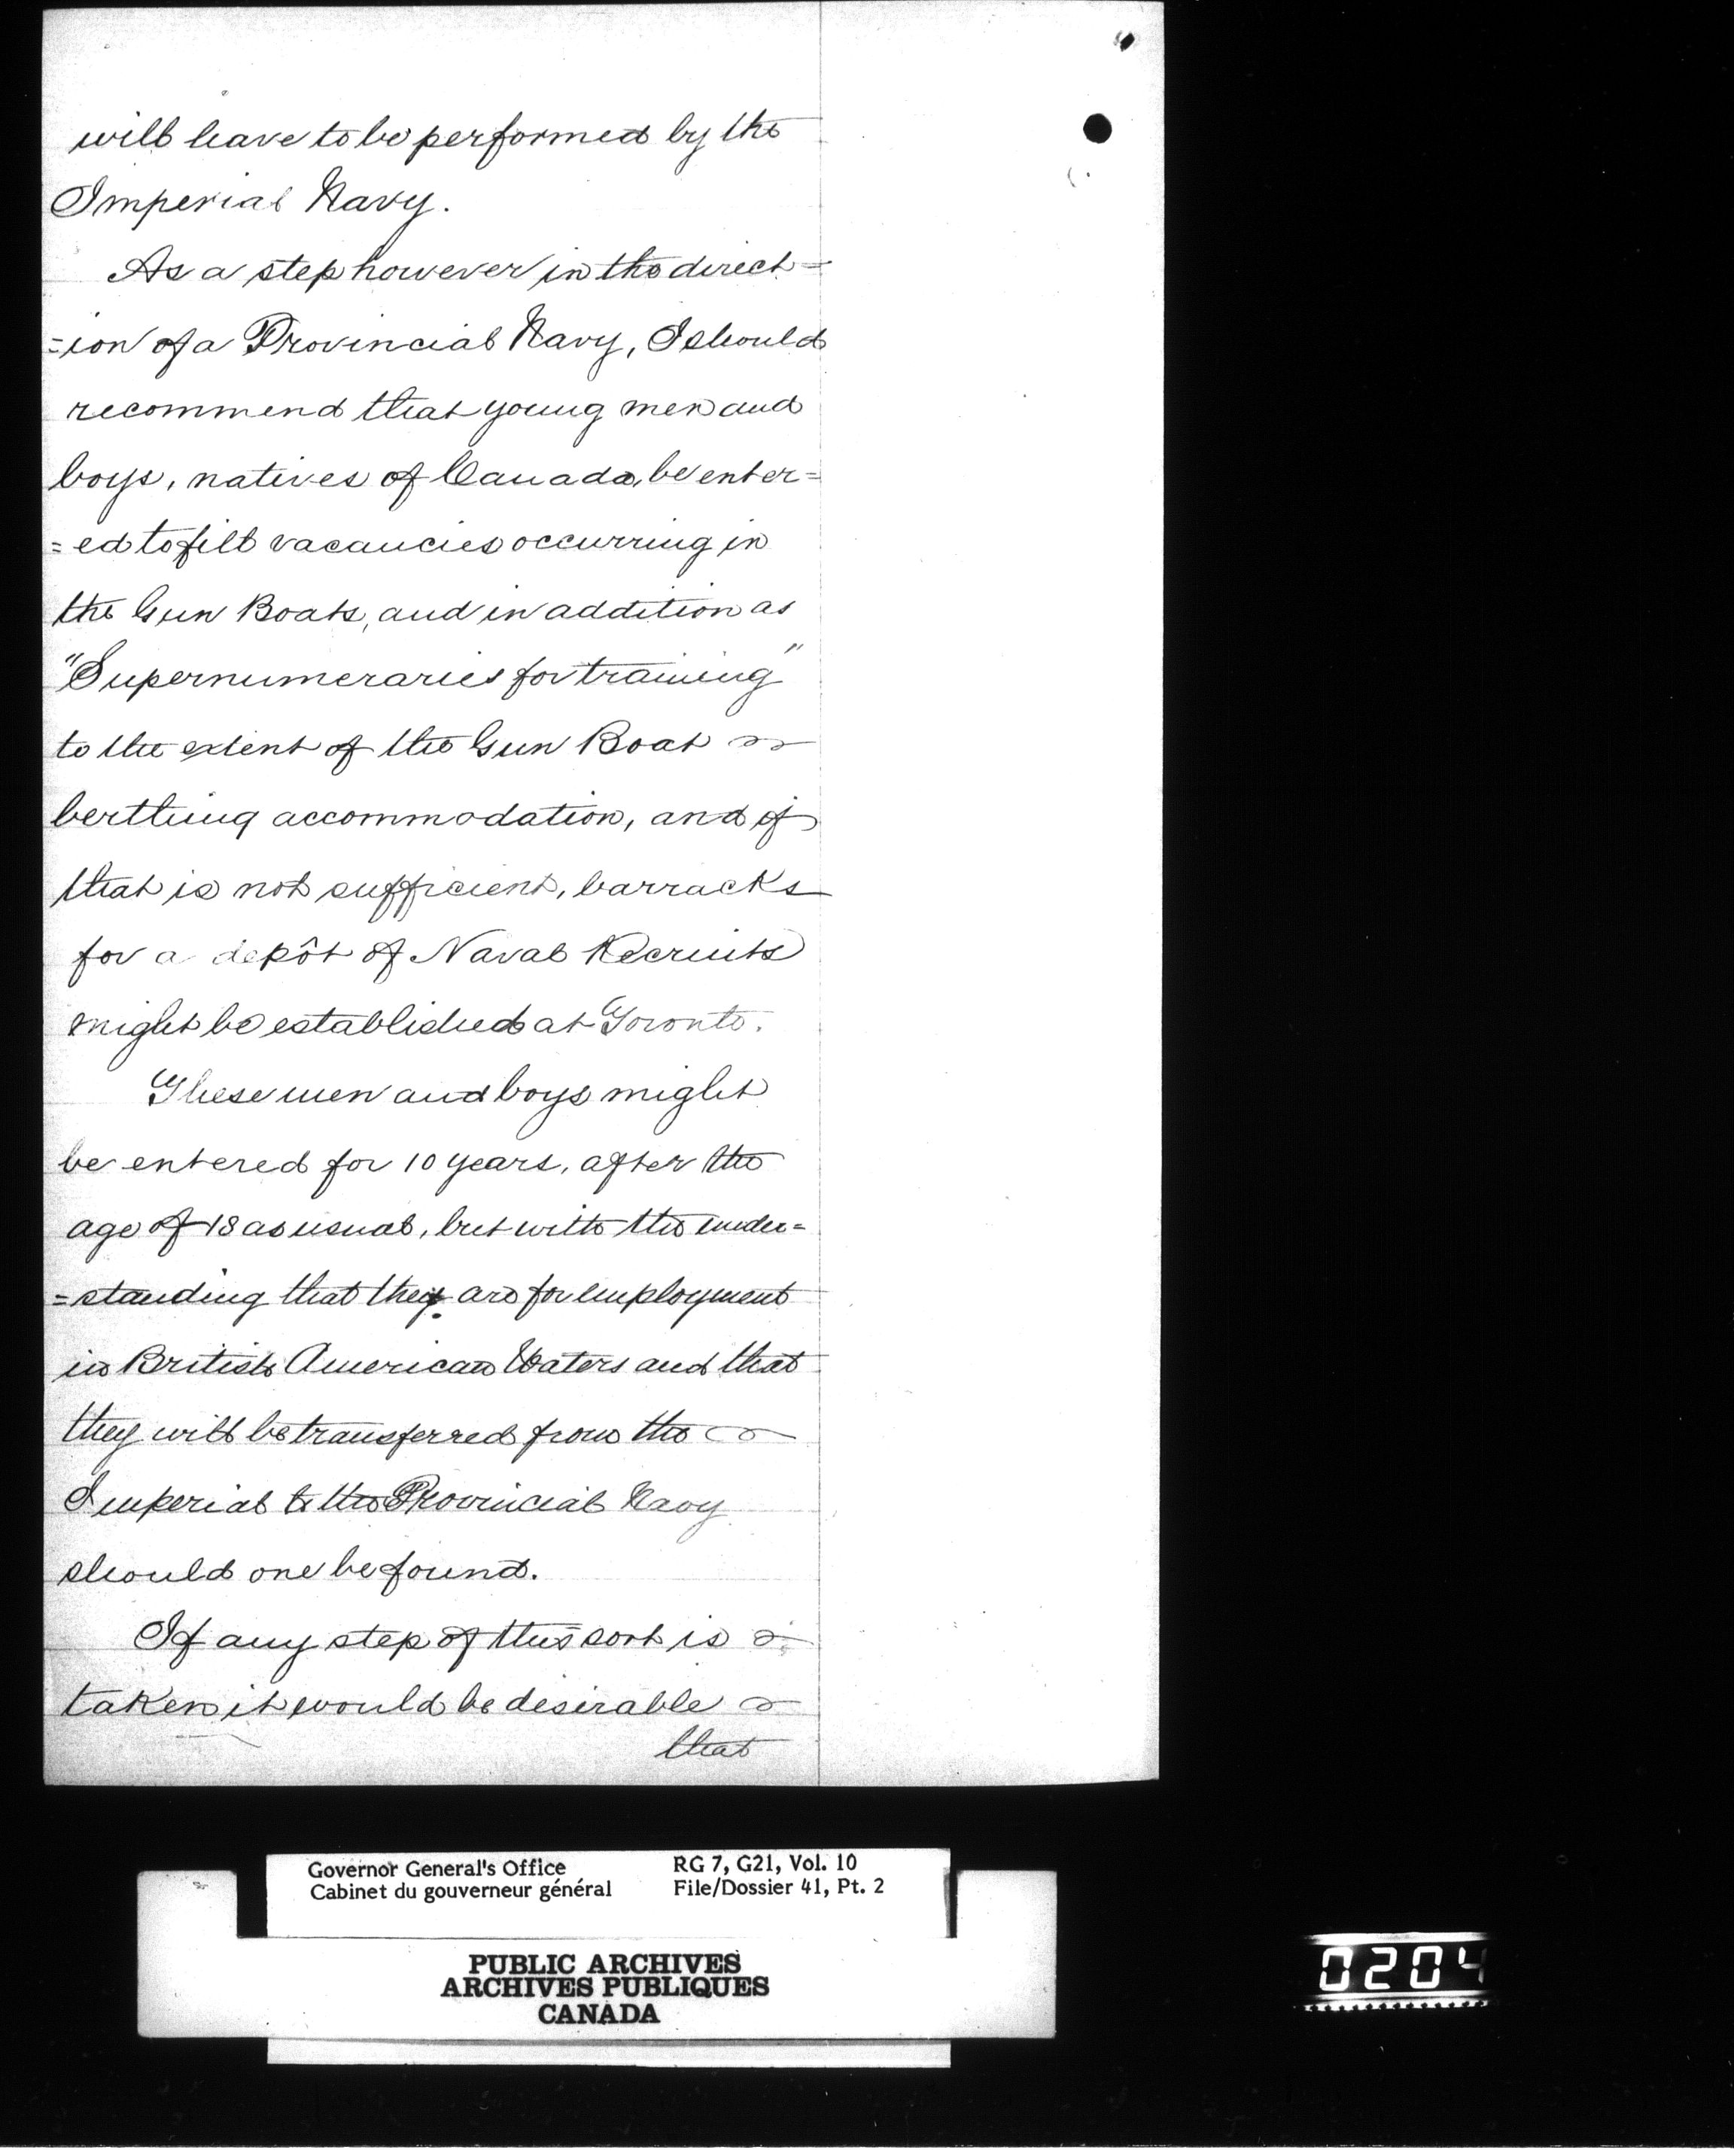 will have to be performed by the
Imperial Navy.
As a step however in the direct=
=ion of a Provincial Navy, I should
recommend that young men and
boys, natives of Canada, be enter=
=ed to fill vacancies occurring in
the Gun Boats, and in addition as
"Supernumeraries for training"
to the extent of the Gun Boat
berthing accommodation, and if
that is not sufficient, barracks
for a depôt of Naval Recruits
might be established at Toronto.
These men and boys might
be entered for 10 years, after the
age of 18 as usual, but with the under=
=standing that they are for employment
in British American Waters and that
they will be transferred from the
Imperial to the Provincial Navy
should one be found.
If any step of this sort is
taken it would be desirable
that
Governor General's Office
Cabinet du gouverneur général
RG 7, G21, Vol. 10
File/Dossier 41, Pt. 2
PUBLIC ARCHIVES
ARCHIVES PUBLIQUES
CANADA
0204